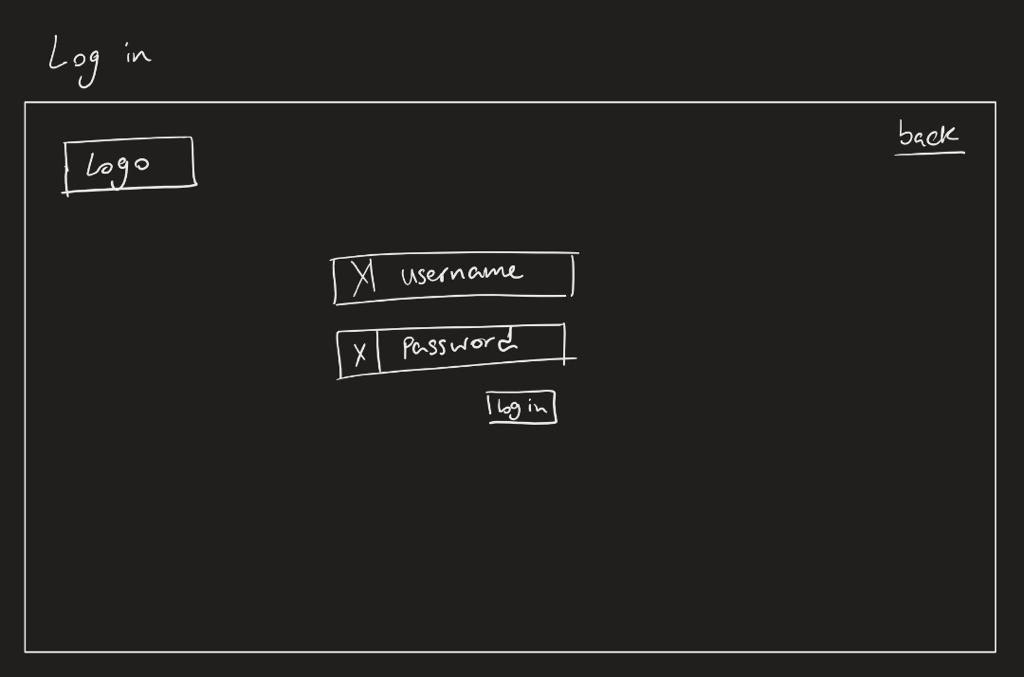 Log in
Logo
back
X username
X Password
Log in